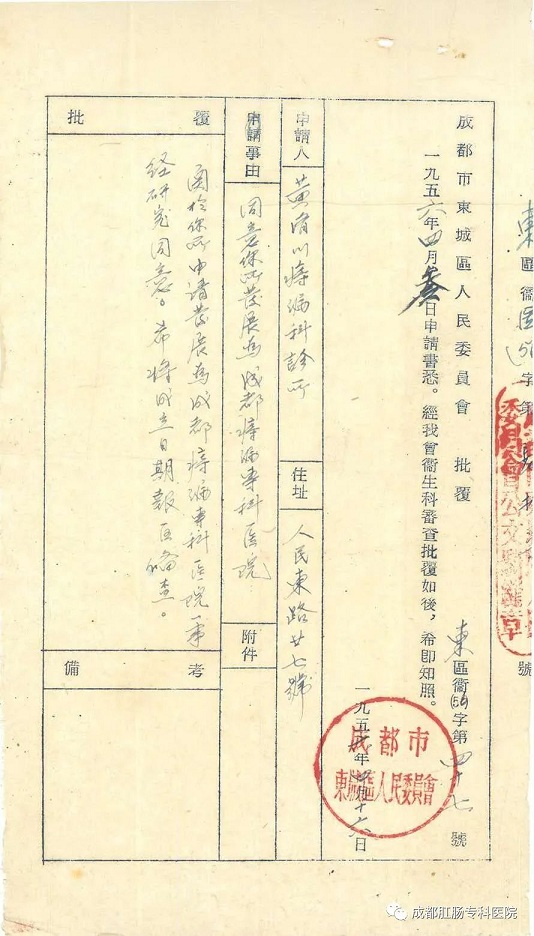 成都市東城區人民委員會 批覆 東區衞(56)字第四十七號
一九五六年四月叁日申請書悉。經我會衞生科審查批覆如後，希卽知照。
一九五六年四月十六日
成都市
東城區人民委員會
申請人 黄省川痔漏科診所 住址 人民東路廿七號
申請事由 同意你所發展為成都痔漏專科医院 附件
批覆
関於你所申請發展為成都痔漏專科医院一事
经研究同意。希将成立日期報区備查。
備考
東區衞(56)字第 號
委員會公文騎縫章
成都肛肠专科医院